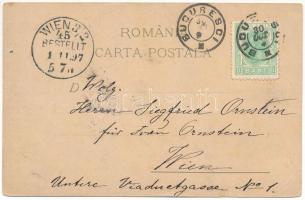 ROMÂNIA
CARTA POSTALA
WIEN 3/2
45
BESTELLT
1.11.97
BUCURESCI
BUCURESCI
30
D
Wolg.
Herrn Siegfried Ornstein
für Ornstein
Wien
Untere Viaductgasse No 1.